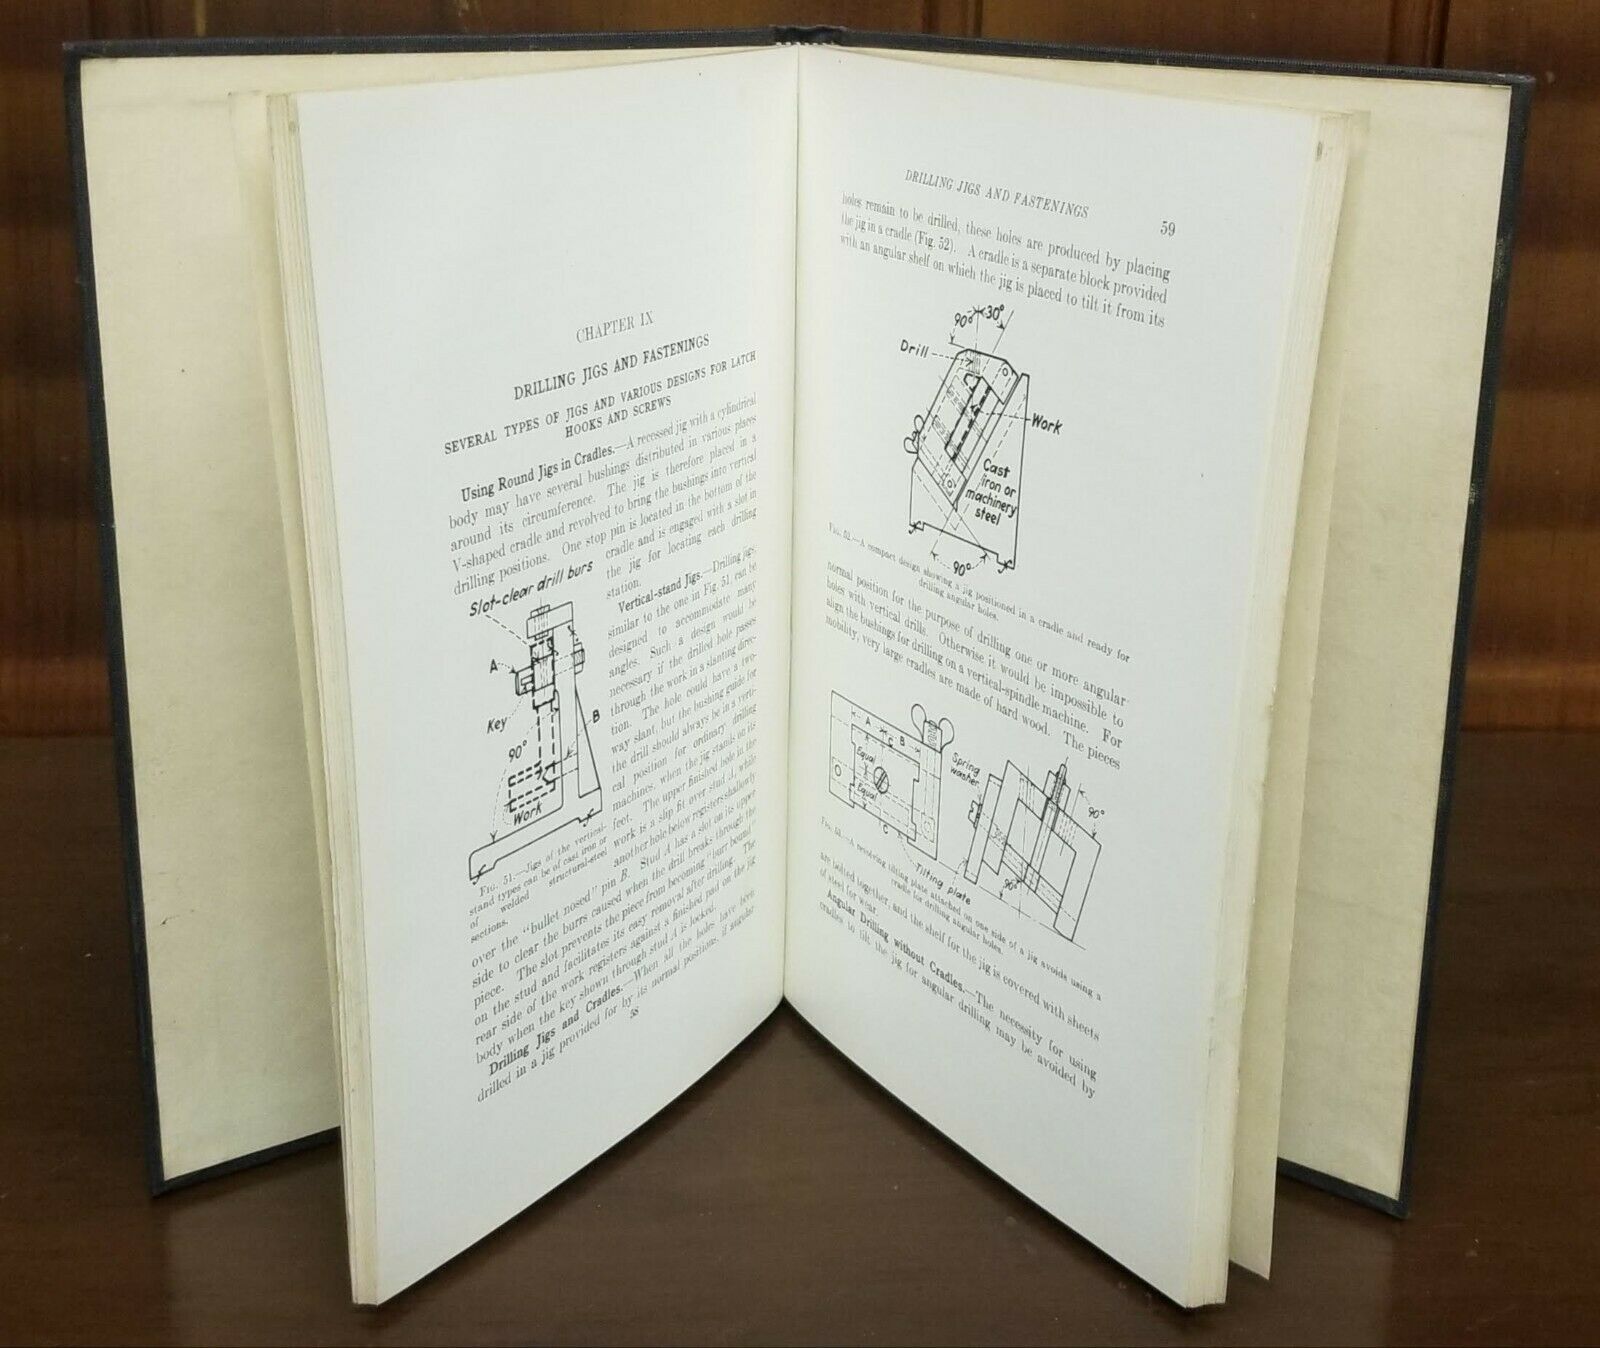 CHAPTER IX
DRILLING JIGS AND FASTENINGS
SEVERAL TYPES OF JIGS AND VARIOUS DESIGNS FOR LATCH
HOOKS AND SCREWS
Using Round Jigs in Cradles.—A recessed jig with a cylindrical
body may have several bushings distributed in various places
around its circumference. The jig is therefore placed in a
V-shaped cradle and revolved to bring the bushings into vertical
drilling positions. One stop pin is located in the bottom of the
cradle and is engaged with a slot in
the jig for locating each drilling
station.
Vertical-stand Jigs.—Drilling jigs,
similar to the one in Fig. 51, can be
designed to accommodate many
angles. Such a design would be
necessary if the drilled hole passes
through the work in a slanting direc-
tion. The hole could have a two-
way slant, but the bushing guide for
the drill should always be in a verti-
cal position for ordinary drilling
machines, when the jig stands on its
feet. The upper finished hole in the
work is a slip fit over stud A, while
another hole below registers shallowly
Slot-clear drill burs
A
Key
90°
B
Work
FIG. 51.—Jigs of the vertical-
stand types can be of cast iron or
of welded structural-steel
sections.
over the "bullet nosed" pin B. Stud A has a slot on its upper
side to clear the burrs caused when the drill breaks through the
piece. The slot prevents the piece from becoming "burr bound"
on the stud and facilitates its easy removal after drilling. The
rear side of the work registers against a finished pad on the jig
body when the key shown through stud A is locked.
Drilling Jigs and Cradles.—When all the holes have been
drilled in a jig provided for by its normal positions, if angular
58
DRILLING JIGS AND FASTENINGS
59
holes remain to be drilled, these holes are produced by placing
the jig in a cradle (Fig. 52). A cradle is a separate block provided
with an angular shelf on which the jig is placed to tilt it from its
90°
30°
Drill
Work
Cast
iron or
machinery
steel
90°
FIG. 52.—A compact design showing a jig positioned in a cradle and ready for
drilling angular holes.
normal position for the purpose of drilling one or more angular
holes with vertical drills. Otherwise it would be impossible to
align the bushings for drilling on a vertical-spindle machine. For
mobility, very large cradles are made of hard wood. The pieces
A
B
C
Equal
Equal
C
Spring
washer
90°
90°
Tilting plate
FIG. 53.—A revolving tilting plate attached on one side of a jig avoids using a
cradle for drilling angular holes.
are bolted together, and the shelf for the jig is covered with sheets
of steel for wear.
Angular Drilling without Cradles.—The necessity for using
cradles to tilt the jig for angular drilling may be avoided by